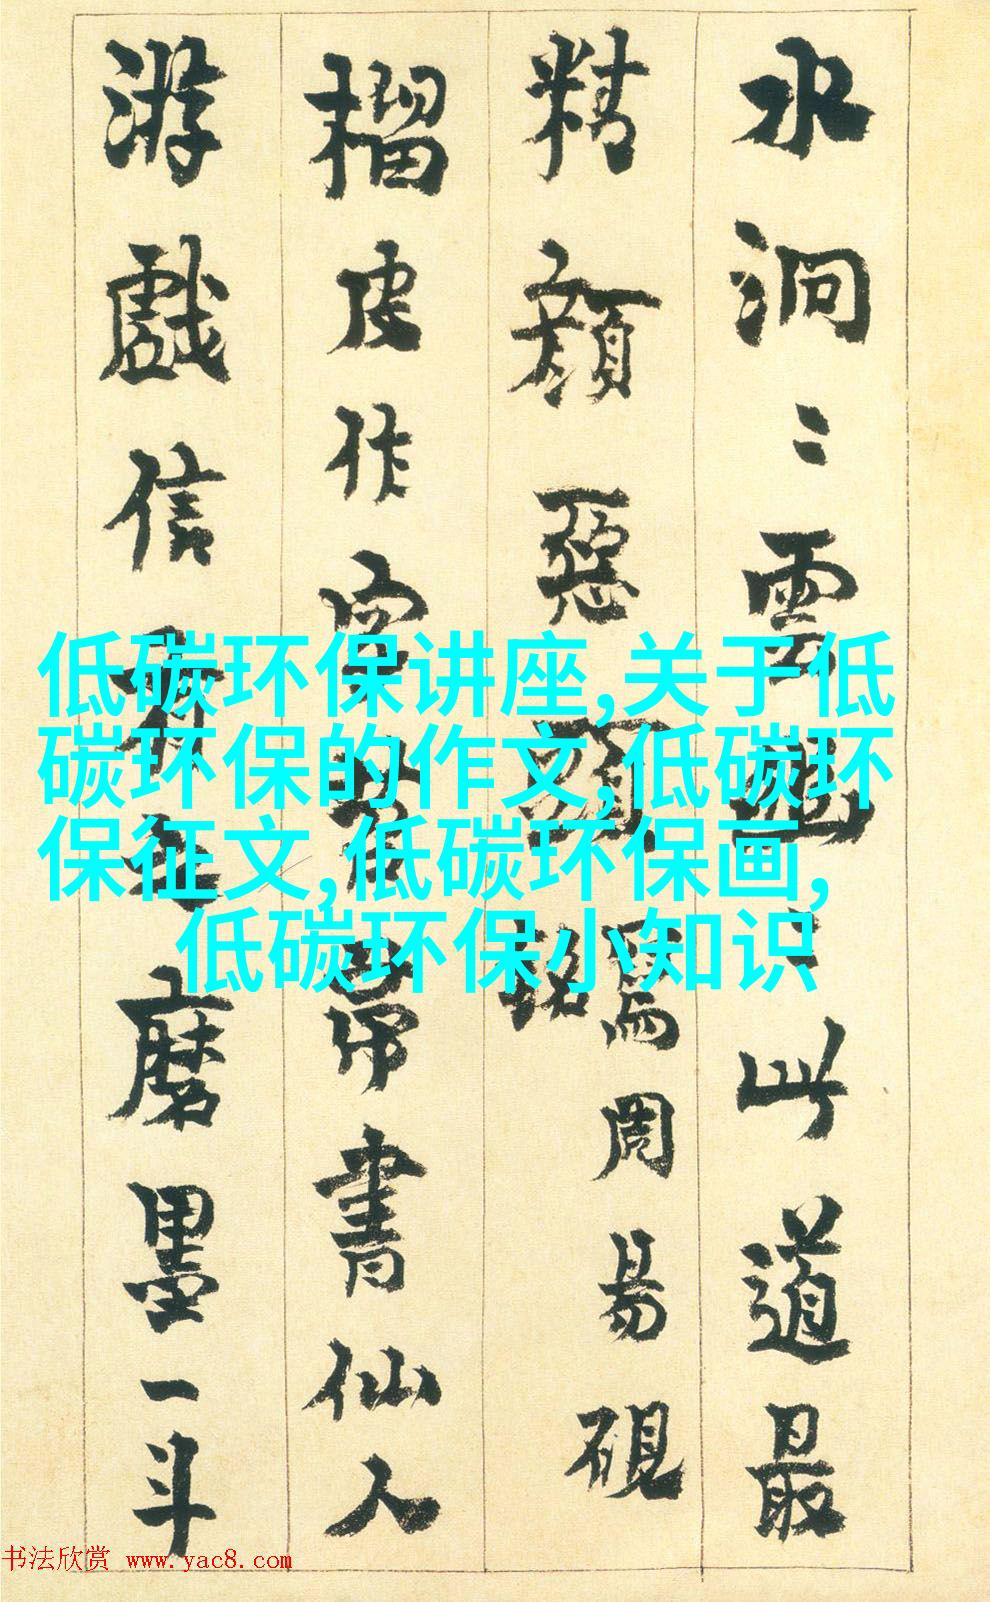 水洞〻雲幽〻此道最
精顏惡頭寫周易硯
銘
榴皮作字笤帚書仙人
游戲信磨墨一斗
低碳环保讲座,关于低
碳环保的作文,低碳环
保征文,低碳环保画,
低碳环保小知识
书法欣赏 www.yac8.com